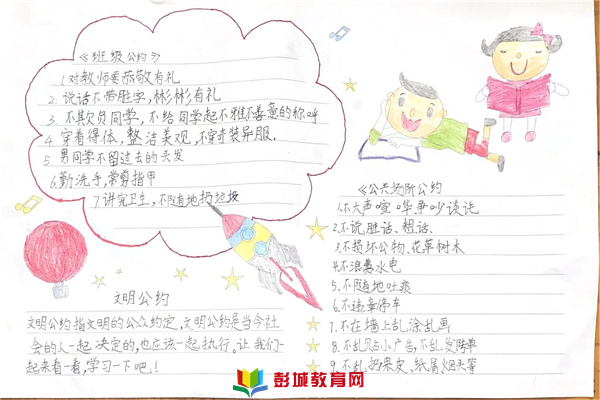 《班级公约》
1.对教师要恭敬有礼
2.说话不带脏字,彬彬有礼
3.不欺负同学,不给同学起不雅不善意的称呼
4 穿着得体,整洁美观,不穿奇装异服.
5 男同学不留过去的头发
6.勤洗手,常剪指甲
7.讲究卫生,不随地扔垃圾
文明公约
文明公约指文明的公众约定,文明公约是当今社
会的人一起决定的,也应该一起执行。让我们一
起来看一看,学习一下吧!
《公共场所公约
1.不大声喧哗争吵谈话
2.不说,脏话、粗话.
3.不损坏公物、花草树木
4.不浪费水电
5.不随地吐痰
6.不违章停车
7.不在墙上乱涂乱画
8.不乱贴小广告,不乱发传单
9.不乱扔果皮、纸屑烟头等
彭城教育网